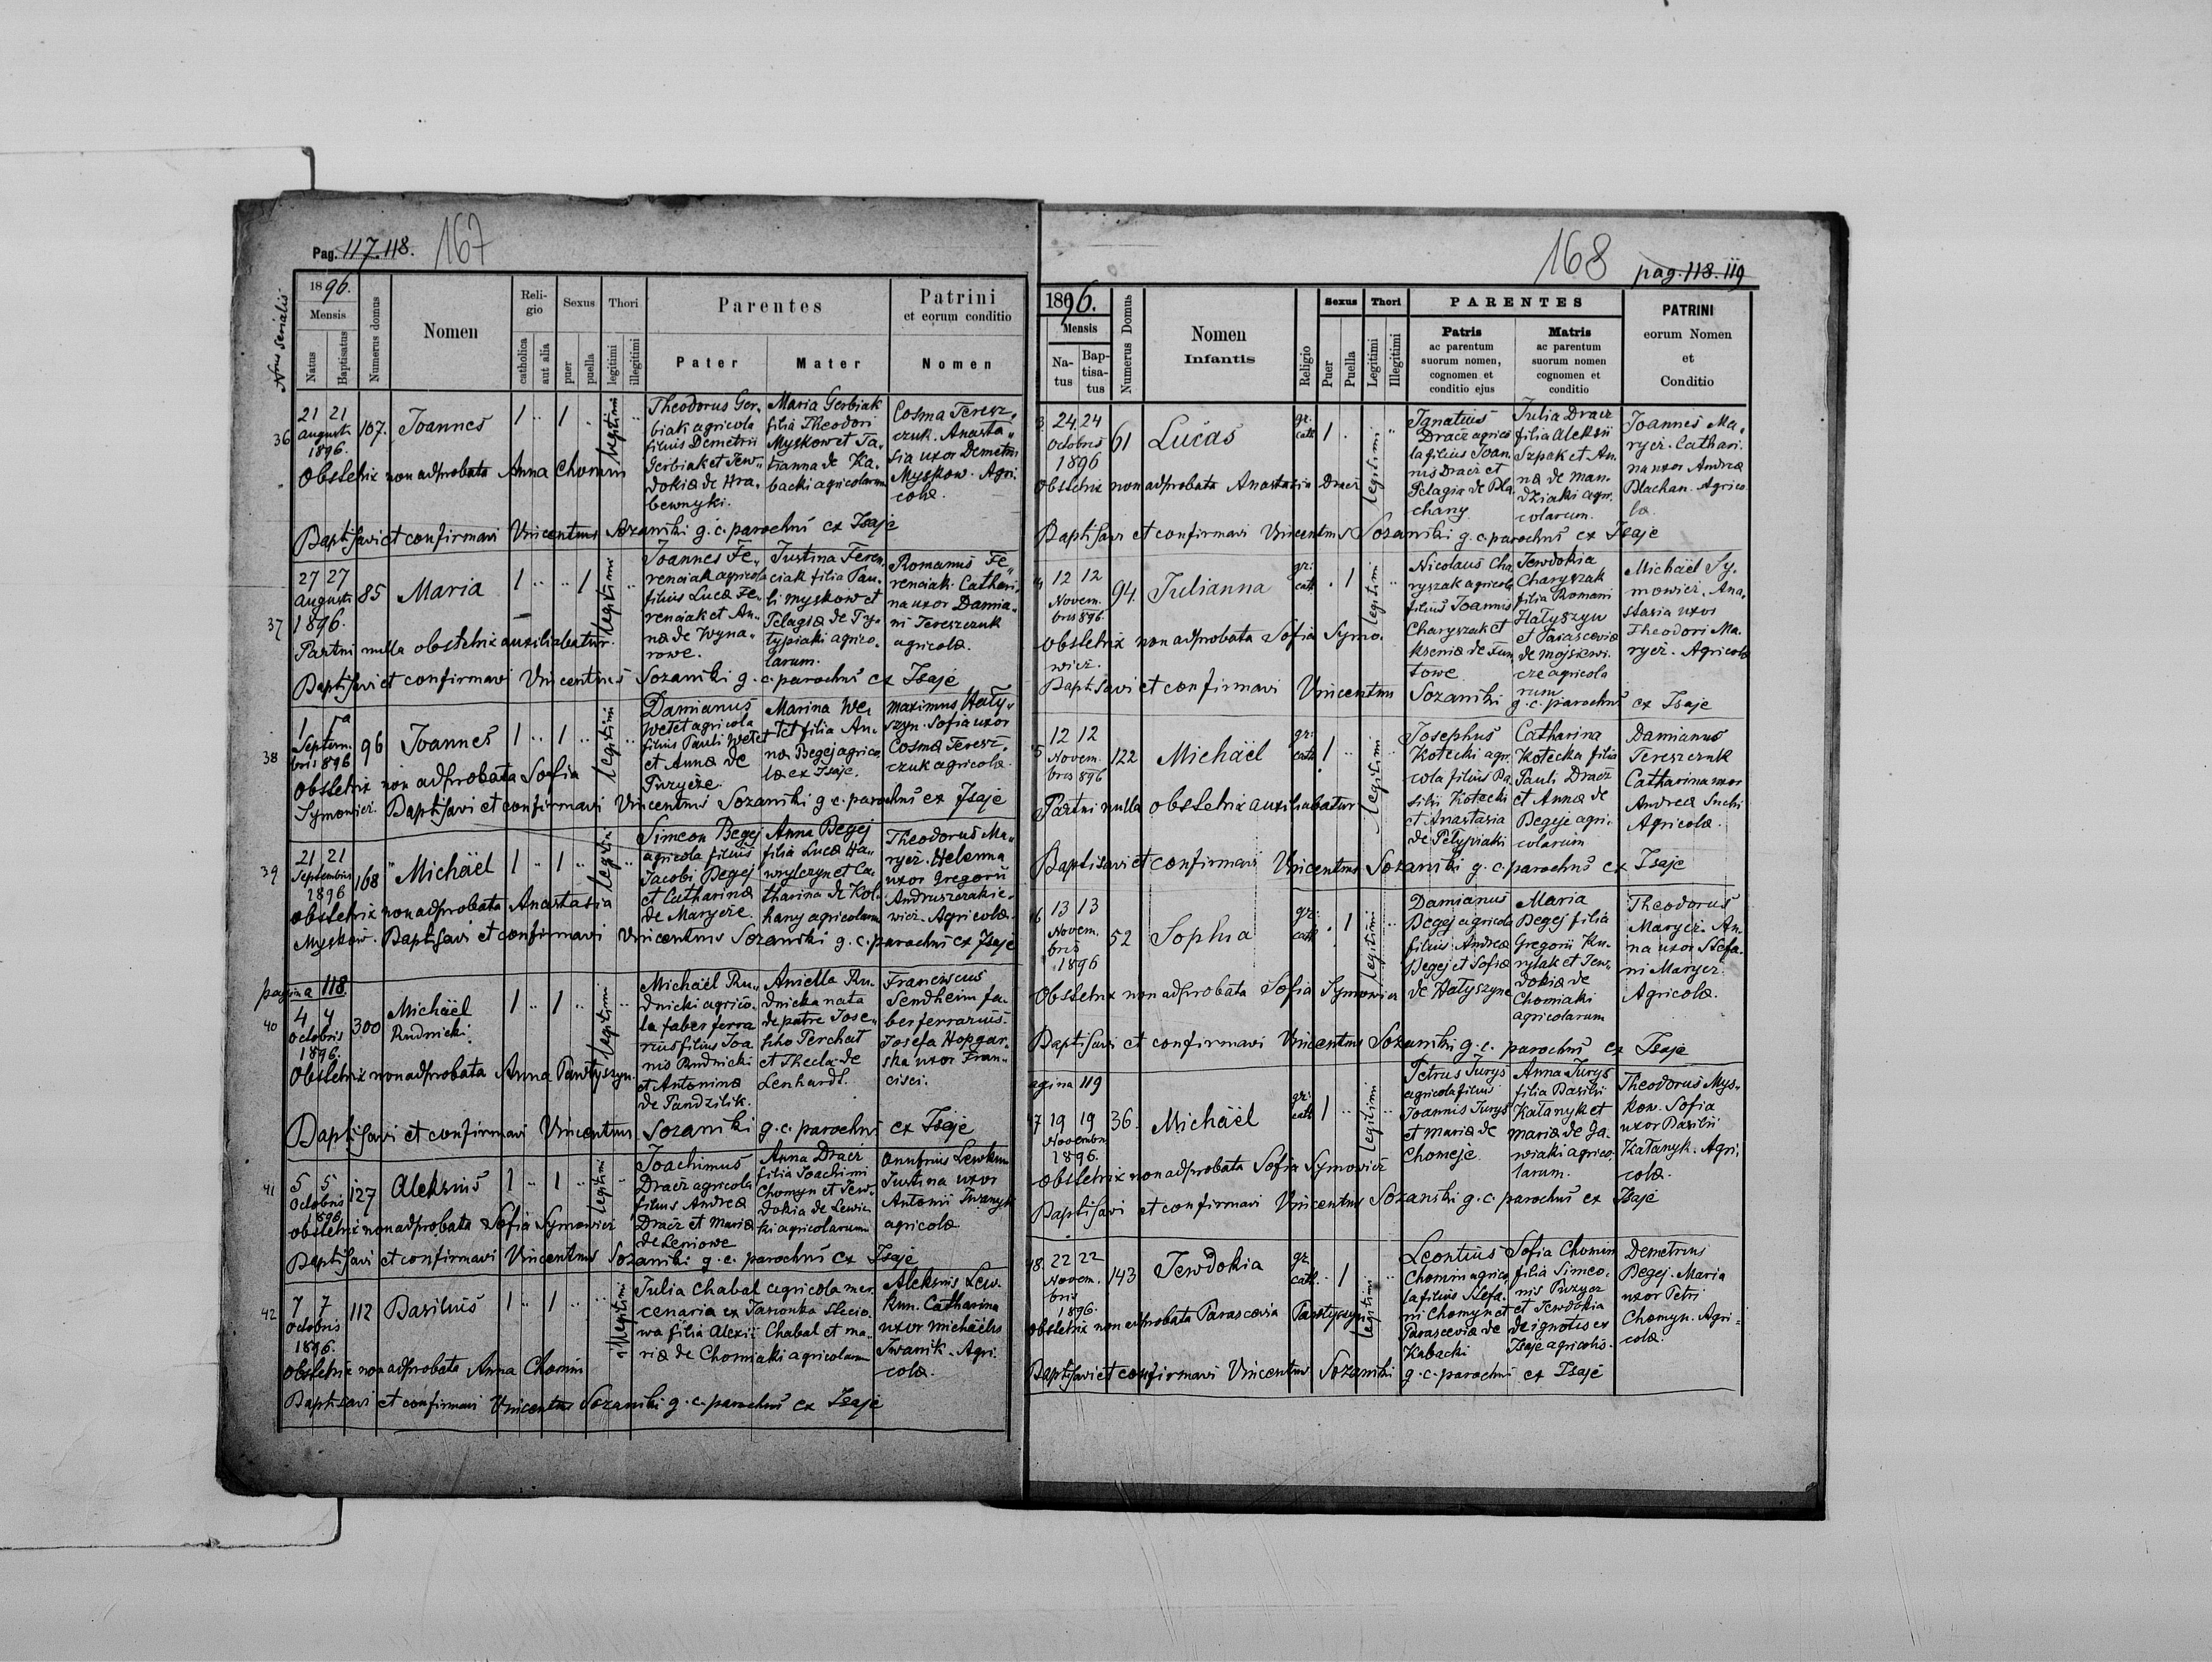 Pag. 117.118. 167
Nrus serialis
1896.
Mensis
Natus
Baptisatus
Numerus domus
Nomen
Religio
catholica
aut alia
Sexus
puer
puella
Thori
legitimi
illegitimi
Parentes
Pater
Mater
Patrini
et eorum conditio
Nomen
36
21 21
Augusti
1896.
107.
Joannes
1 .. 1 ..
legitimi
Theodorus Ger-
biak agricola
filius Demetrii
Gerbiak et Jew-
dokiæ de Hra-
bewnyki.
Maria Gerbiak
filia Theodori
Myskow et Ta-
tianna de Ka-
backi agricolarum
Cosma Teresz-
czuk. Anasta-
sia uxor Demetrii
Myskow. Agri-
colæ.
Obstetrix non adprobata Anna Chomin
Baptisavi et confirmavi Vincentius Sozanski g. c. parochus ex Isaje
37
27 27
Augusti
1896.
85
Maria
1 .. .. 1
legitimi
Joannes Fe-
renciak agricola
filius Lucæ Fe-
renciak et An-
næ de Wyna-
rowe.
Justina Feren-
ciak filia Pau-
li Myskow et
Pelagiæ de Py-
typiaki agrico-
larum.
Romanus Fe-
renciak. Cathari-
na uxor Damia-
ni Tereszczuk
agricolæ.
Partui nulla obstetrix auxiliabatur.
Baptisavi et confirmavi Vincentius Sozanski g. c. parochus ex Isaje
38
1 1a
Septem-
bris 896
96
Joannes
1 .. 1 ..
legitimi
Damianus
Wetet agricola
filius Pauli Wetet
et Annæ de
Puzycze.
Marina We-
tet filia An-
næ Begej agrico-
læ ex Isaje.
Maximus Haty-
szyn. Sofia uxor
Cosmæ Teresz-
czuk agricolæ.
Obstetrix non adprobata Sofia
Symowicz. Baptisavi et confirmavi Vincentius Sozanski g. c. parochus ex Isaje
39
21 21
Septembris
1896
168
Michäel
1 .. 1 ..
legitimi
Simeon Begej
agricola filius
Jacobi Begej
et Catharinæ
de Marycze.
Anna Begej
filia Lucæ Ha-
wrylczyn et Ca-
tharina de Kol-
hany agricolarum
Theodorus Ma-
rycz. Helenna
uxor Gregorii
Andruszczakie-
wicz. Agricolæ.
Obstetrix non adprobata Anastasia
Myskow. Baptisavi et confirmavi Vincentius Sozanski g. c. parochus ex Isaje
pagina 118
40
4 4
Octobris
1896.
300
Michäel
Rudnicki.
1 .. 1 ..
legitimi
Michäel Ru-
dnicki agrico-
la faber ferra-
rius filius Joa-
nnis Rudnicki
et Antoninæ
de Pandzilik.
Aniella Ru-
dnicka nata
de patre Jose-
pho Perchat
et Thecla de
Lenhardt.
Franciscus
Sendheim fa-
ber ferrarius.
Josefa Hopgar-
ska uxor Fran-
cisci.
Obstetrix non adprobata Anna Pawtyszyn.
Baptisavi et confirmavi Vincentius Sozanski g. c. parochus ex Isaje
41
5 5
Octobris
1896
127
Aleksius
1 .. 1 ..
legitimi
Joachimus
Dracz agricola
filius Andreæ
Dracz et Mariæ
de Leniowe
Anna Dracz
filia Joachimi
Chomyn et Jew-
dokia de Lewic-
ki agricolarum
Onufrius Lewkun
Justina uxor
Antonii Iwanyk
agricolæ
Obstetrix non adprobata Sofia Symowicz
Baptisavi et confirmavi Vincentius Sozanski g. c. parochus ex Isaje
42
7 7
Octobris
1896.
112
Basilius
1 .. 1 ..
illegitimi
Julia Chabal agricola mer-
cenaria ex Jasionka Stecio-
wa filia Alexii Chabal et Ma-
riæ de Chomiaki agricolarum
Aleksius Lew-
kun. Catharina
uxor Michäelis
Iwanik. Agri-
colæ.
Obstetrix non adprobata Anna Chomin
Baptisavi et confirmavi Vincentius Sozanski g. c. parochus ex Isaje
168 pag. 118. 119
1896.
Mensis
Na-
tus
Bap-
tisa-
tus
Numerus Domus
Nomen
Infantis
Religio
Sexus
Puer
Puella
Thori
Legitimi
Illegitimi
PARENTES
Patris
ac parentum
suorum nomen,
cognomen et
conditio ejus
Matris
ac parentum
suorum nomen
cognomen et
conditio
PATRINI
eorum Nomen
et
Conditio
3.
24. 24
Octobris
1896
61
Lucas
gr:
cath
1 .
legitimi
Ignatius
Dracz agrico-
la filius Joan-
nis Dracz et
Pelagiæ de Bla-
chany.
Julia Dracz
filia Aleksii
Szpak et An-
næ de Man-
dziaki agri-
colarum.
Joannes Ma-
rycz. Cathari-
na uxor Andreæ
Blachan. Agrico-
læ.
Obstetrix non adprobata Anastasia Dracz
Baptisavi et confirmavi Vincentius Sozanski g. c. parochus ex Isaje
4
12 12
Novem-
bris 896.
94.
Julianna
gr:
cath.
. 1
legitimi
Nicolaus Cha-
ryszak agricola
filius Joannis
Charyszak et
Kseniæ de Fun-
towe
Jewdokia
Charyszak
filia Romani
Hatyszyn
et Parasceviæ
de Mojsewi-
cze agricola-
rum
Michäel Sy-
mowicz. Ana-
stasia uxor
Theodori Ma-
rycz. Agricolæ
Obstetrix non adprobata Sofia Symo-
wicz.
Baptisavi et confirmavi Vincentius Sozanski g. c. parochus ex Isaje
5
12 12
Novem-
bris 896
122
Michäel
gr:
cath.
1 ..
legitimi
Josephus
Kotecki agri-
cola filius Ba-
silii Kotecki
et Anastasia
de Petypiaki
Catharina
Kotecka filia
Pauli Dracz
et Annæ de
Begeje agri-
colarum
Damianus
Tereszczuk
Catharina uxor
Andreæ Suchi
Agricolæ.
Partui nulla obstetrix auxiliabatur
Baptisavi et confirmavi Vincentius Sozanski g. c. parochus ex Isaje
6
13 13
Novem-
bris
1896
52
Sophia
gr:
cath
. 1
legitimi
Damianus
Begej agricola
filius Andreæ
Begej et Sofiæ
de Hatyszyne
Maria
Begej filia
Gregorii Ku-
rylak et Jew-
dokiæ de
Chomiaki
agricolarum
Theodorus
Marycz. An-
na uxor Stefa-
ni Marycz.
Agricolæ.
Obstetrix non adprobata Sofia Symowicz
Baptisavi et confirmavi Vincentius Sozanski g. c. parochus ex Isaje
agina 119
47
19 19
Novembris
1896.
36.
Michäel
gr:
cath
1 ..
legitimi
Petrus Jurys
agricola filius
Joannis Jurys
et Mariæ de
Chomeje.
Anna Jurys
filia Basilii
Katanyk et
Mariæ de Ga-
wiaki agrico-
larum.
Theodorus Mys-
kow. Sofia
uxor Basilii
Katanyk. Agri-
colæ.
Obstetrix non adprobata Sofia Symowicz
Baptisavi et confirmavi Vincentius Sozanski g. c. parochus ex Isaje
48.
22 22
Novem-
bris
1896.
143
Jewdokia
gr.
cath.
.. 1
legitimi
Leontius
Chomin agrico-
la filius Stefa-
ni Chomyn et
Parasceviæ de
Kabacki
Sofia Chomin
filia Simeo-
nis Puzycz
et Jewdokia
de ignotis ex
Isaje agricolis.
Demetrius
Begej. Maria
uxor Petri
Chomyn. Agri-
colæ.
Obstetrix non adprobata Parascevia Pawtyszyn
Baptisavi et confirmavi Vincentius Sozanski g. c. parochus ex Isaje